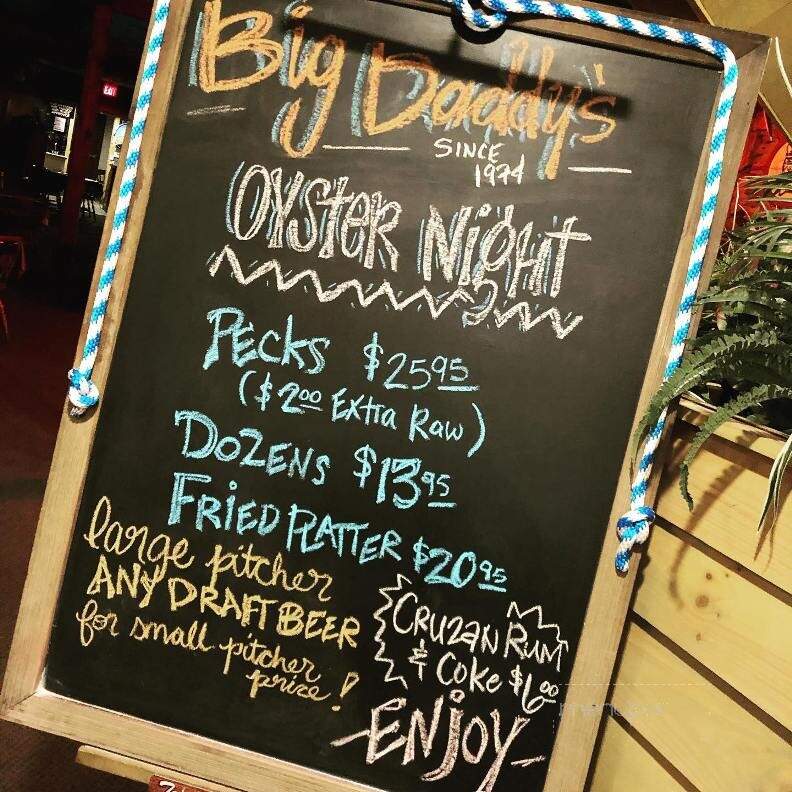 Exit
Big Daddy's
SINCE
1974
OYSTER NIGHT
PECKS $25.95
($2.00 EXTRA RAW)
DOZENS $13.95
FRIED PLATTER $20.95
large pitcher
ANY DRAFT BEER
for small pitcher
prize!
CRUZAN RUM
& COKE $6.00
ENJOY